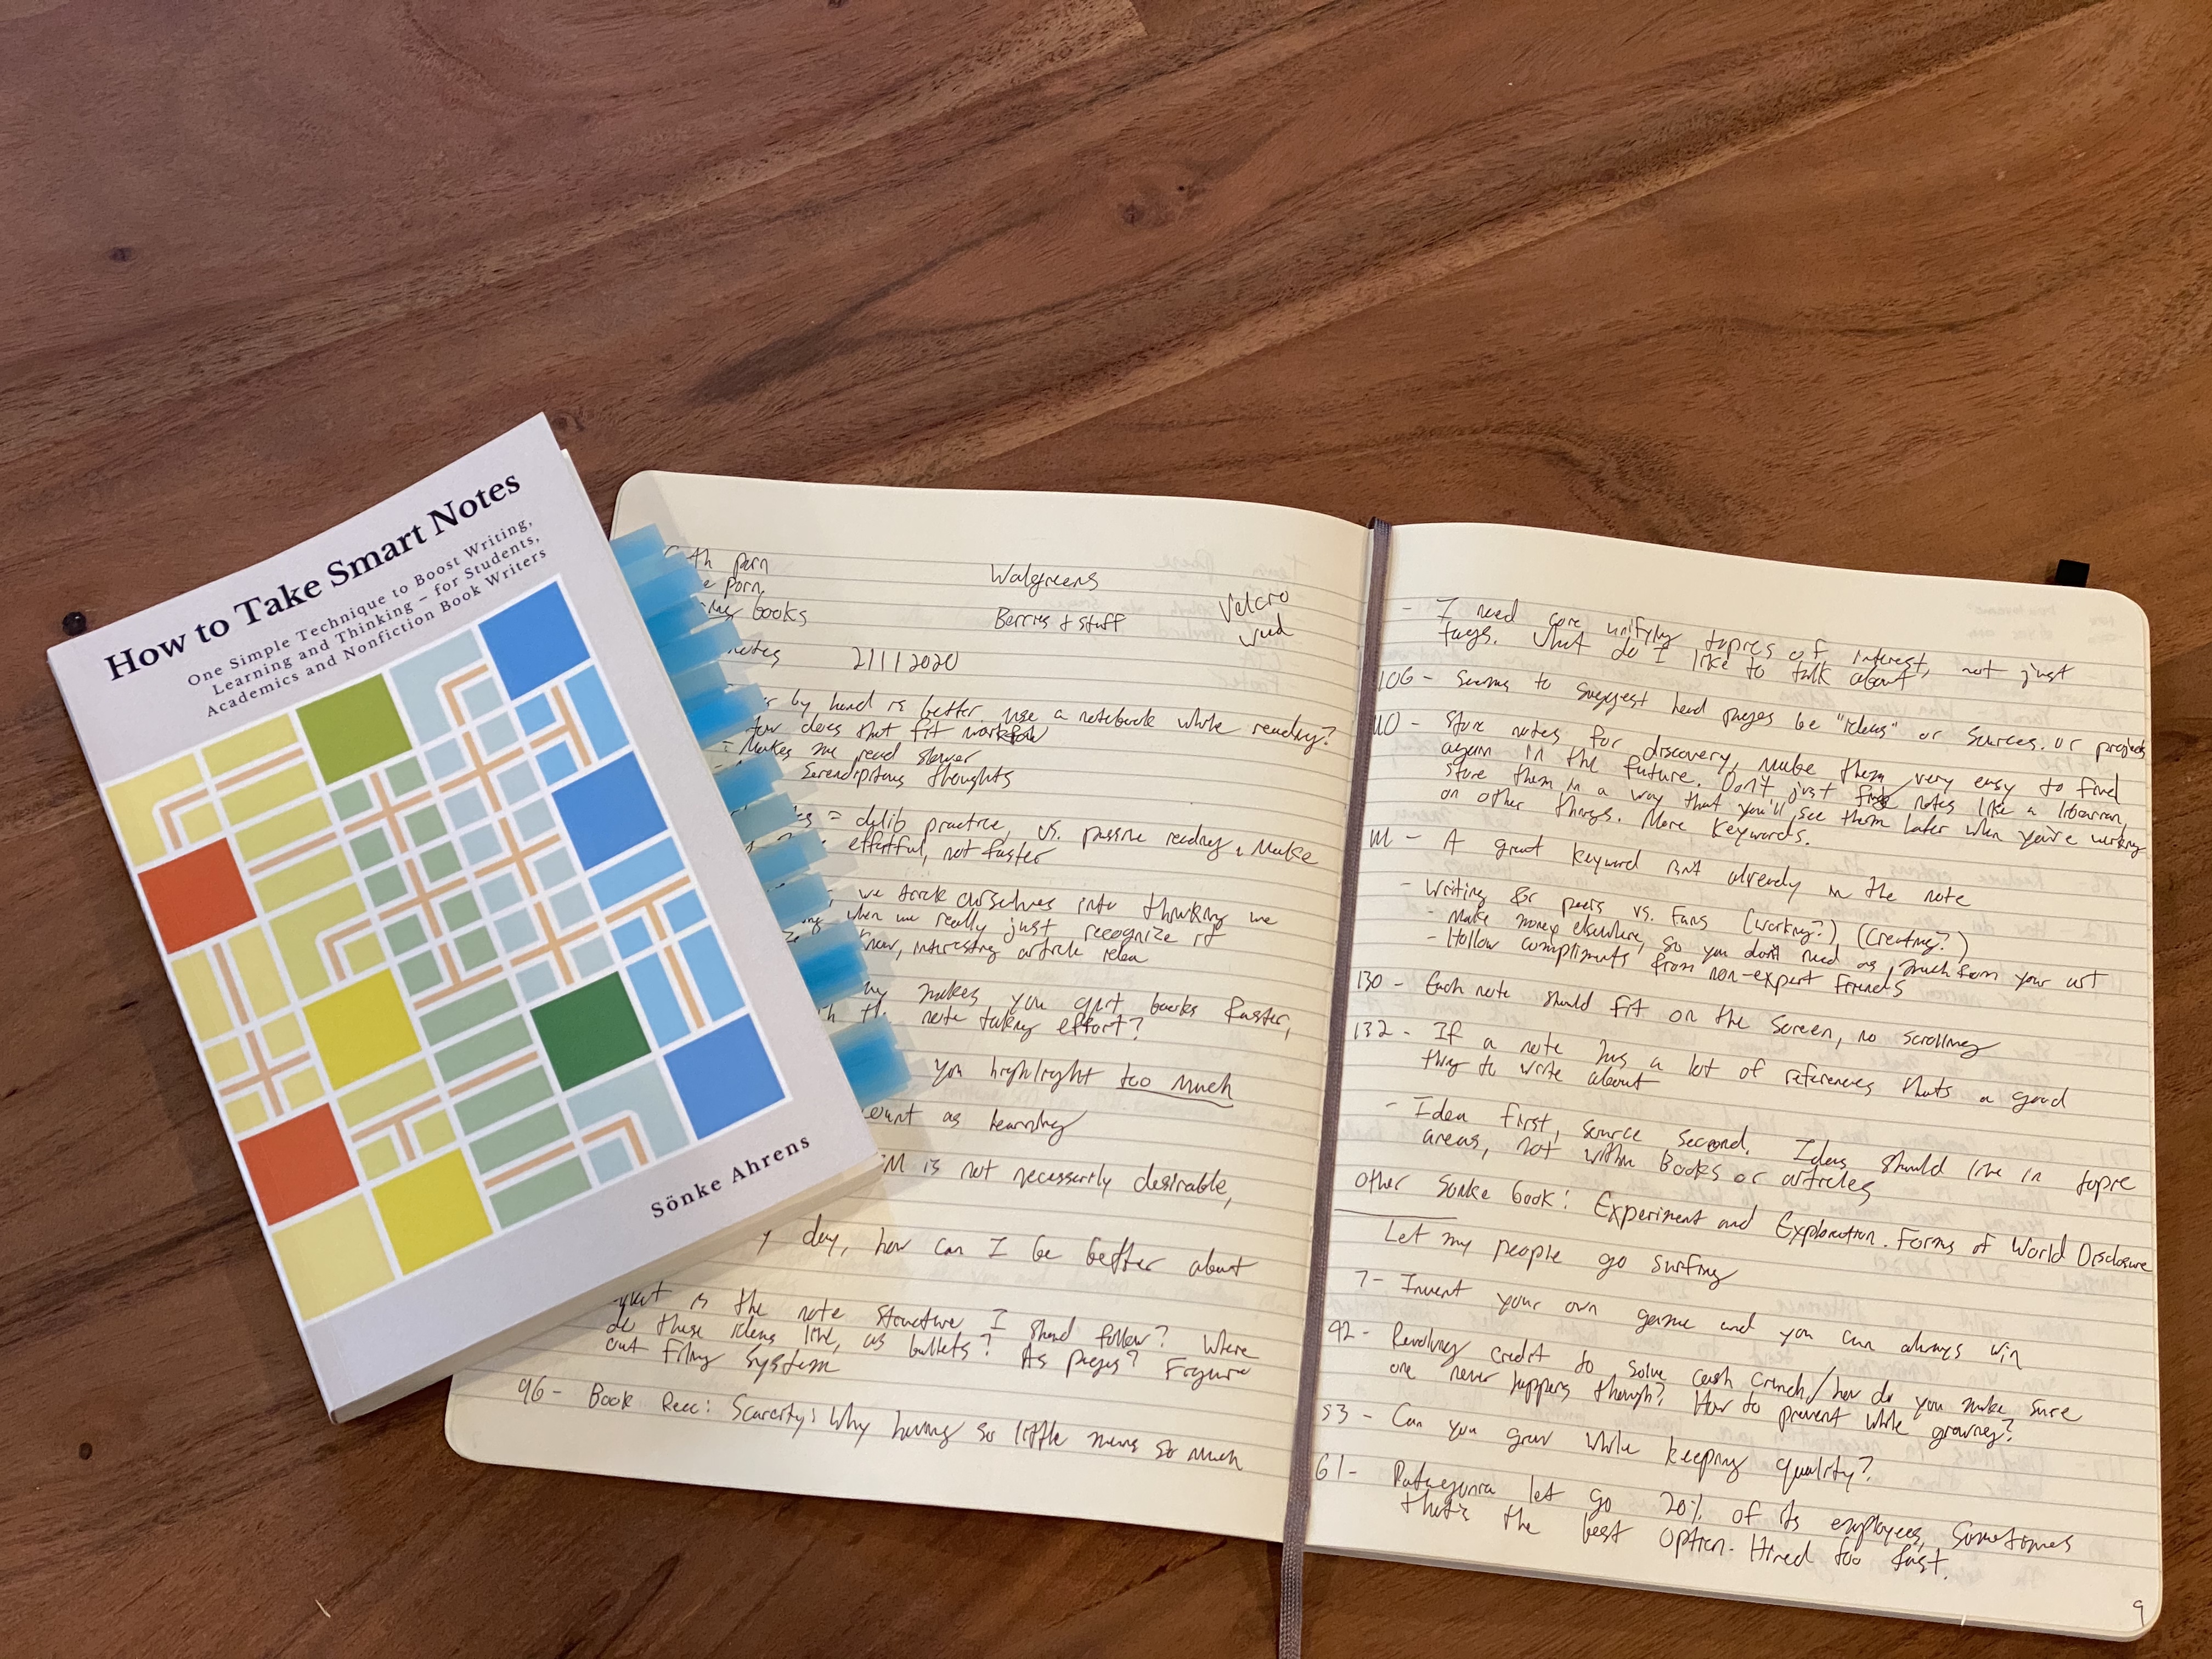 How to Take Smart Notes
One Simple Technique to Boost Writing,
Learning and Thinking – for Students,
Academics and Nonfiction Book Writers
Sönke Ahrens
th porn
e porn
books
Walgreens
Berries & stuff
Velcro
notes 2/11/2020
by hand is better, use a notebook while reading?
how does that fit workflow
- Makes me read slower
Serendipitous thoughts
= delib practice, vs. passive reading. Make
effortful, not faster
we trick ourselves into thinking we
when we really just recognize it
know, interesting article idea
makes you quit books faster,
note taking effort?
you highlight too much
count as learning
is not necessarily desirable,
day, how can I be better about
what is the note structure I should follow? Where
do these ideas live, as bullets? As pages? Figure
out filing system
96 - Book Rec: Scarcity: Why having so little means so much
- I need core unifying topics of interest, not just
tags. What do I like to talk about
106 - Seems to suggest head pages be "ideas" or sources. or projects
110 - Store notes for discovery, make them very easy to find
again in the future. Don't just file notes like a librarian,
store them in a way that you'll see them later when you're working
on other things. More keywords.
111 - A great keyword isn't already in the note
- Writing for peers vs. Fans (working?) (Creating?)
- Make money elsewhere, so you don't need as much from your art
- Hollow compliments from non-expert Friends
130 - Each note should fit on the screen, no scrolling
132 - If a note has a lot of references thats a good
thing to write about
- Idea first, source second. Ideas should live in topic
areas, not within Books or articles
other Sonke book: Experiment and Exploration. Forms of World Disclosure
Let my people go surfing
7 - Invent your own game and you can always win
92 - Revolving credit to solve cash crunch/how do you make sure
one never happens though? How to prevent while growing?
53 - Can you grow while keeping quality?
61 - Patagonia let go 20% of its employees, Sometimes
that's the best option. Hired too fast.
9